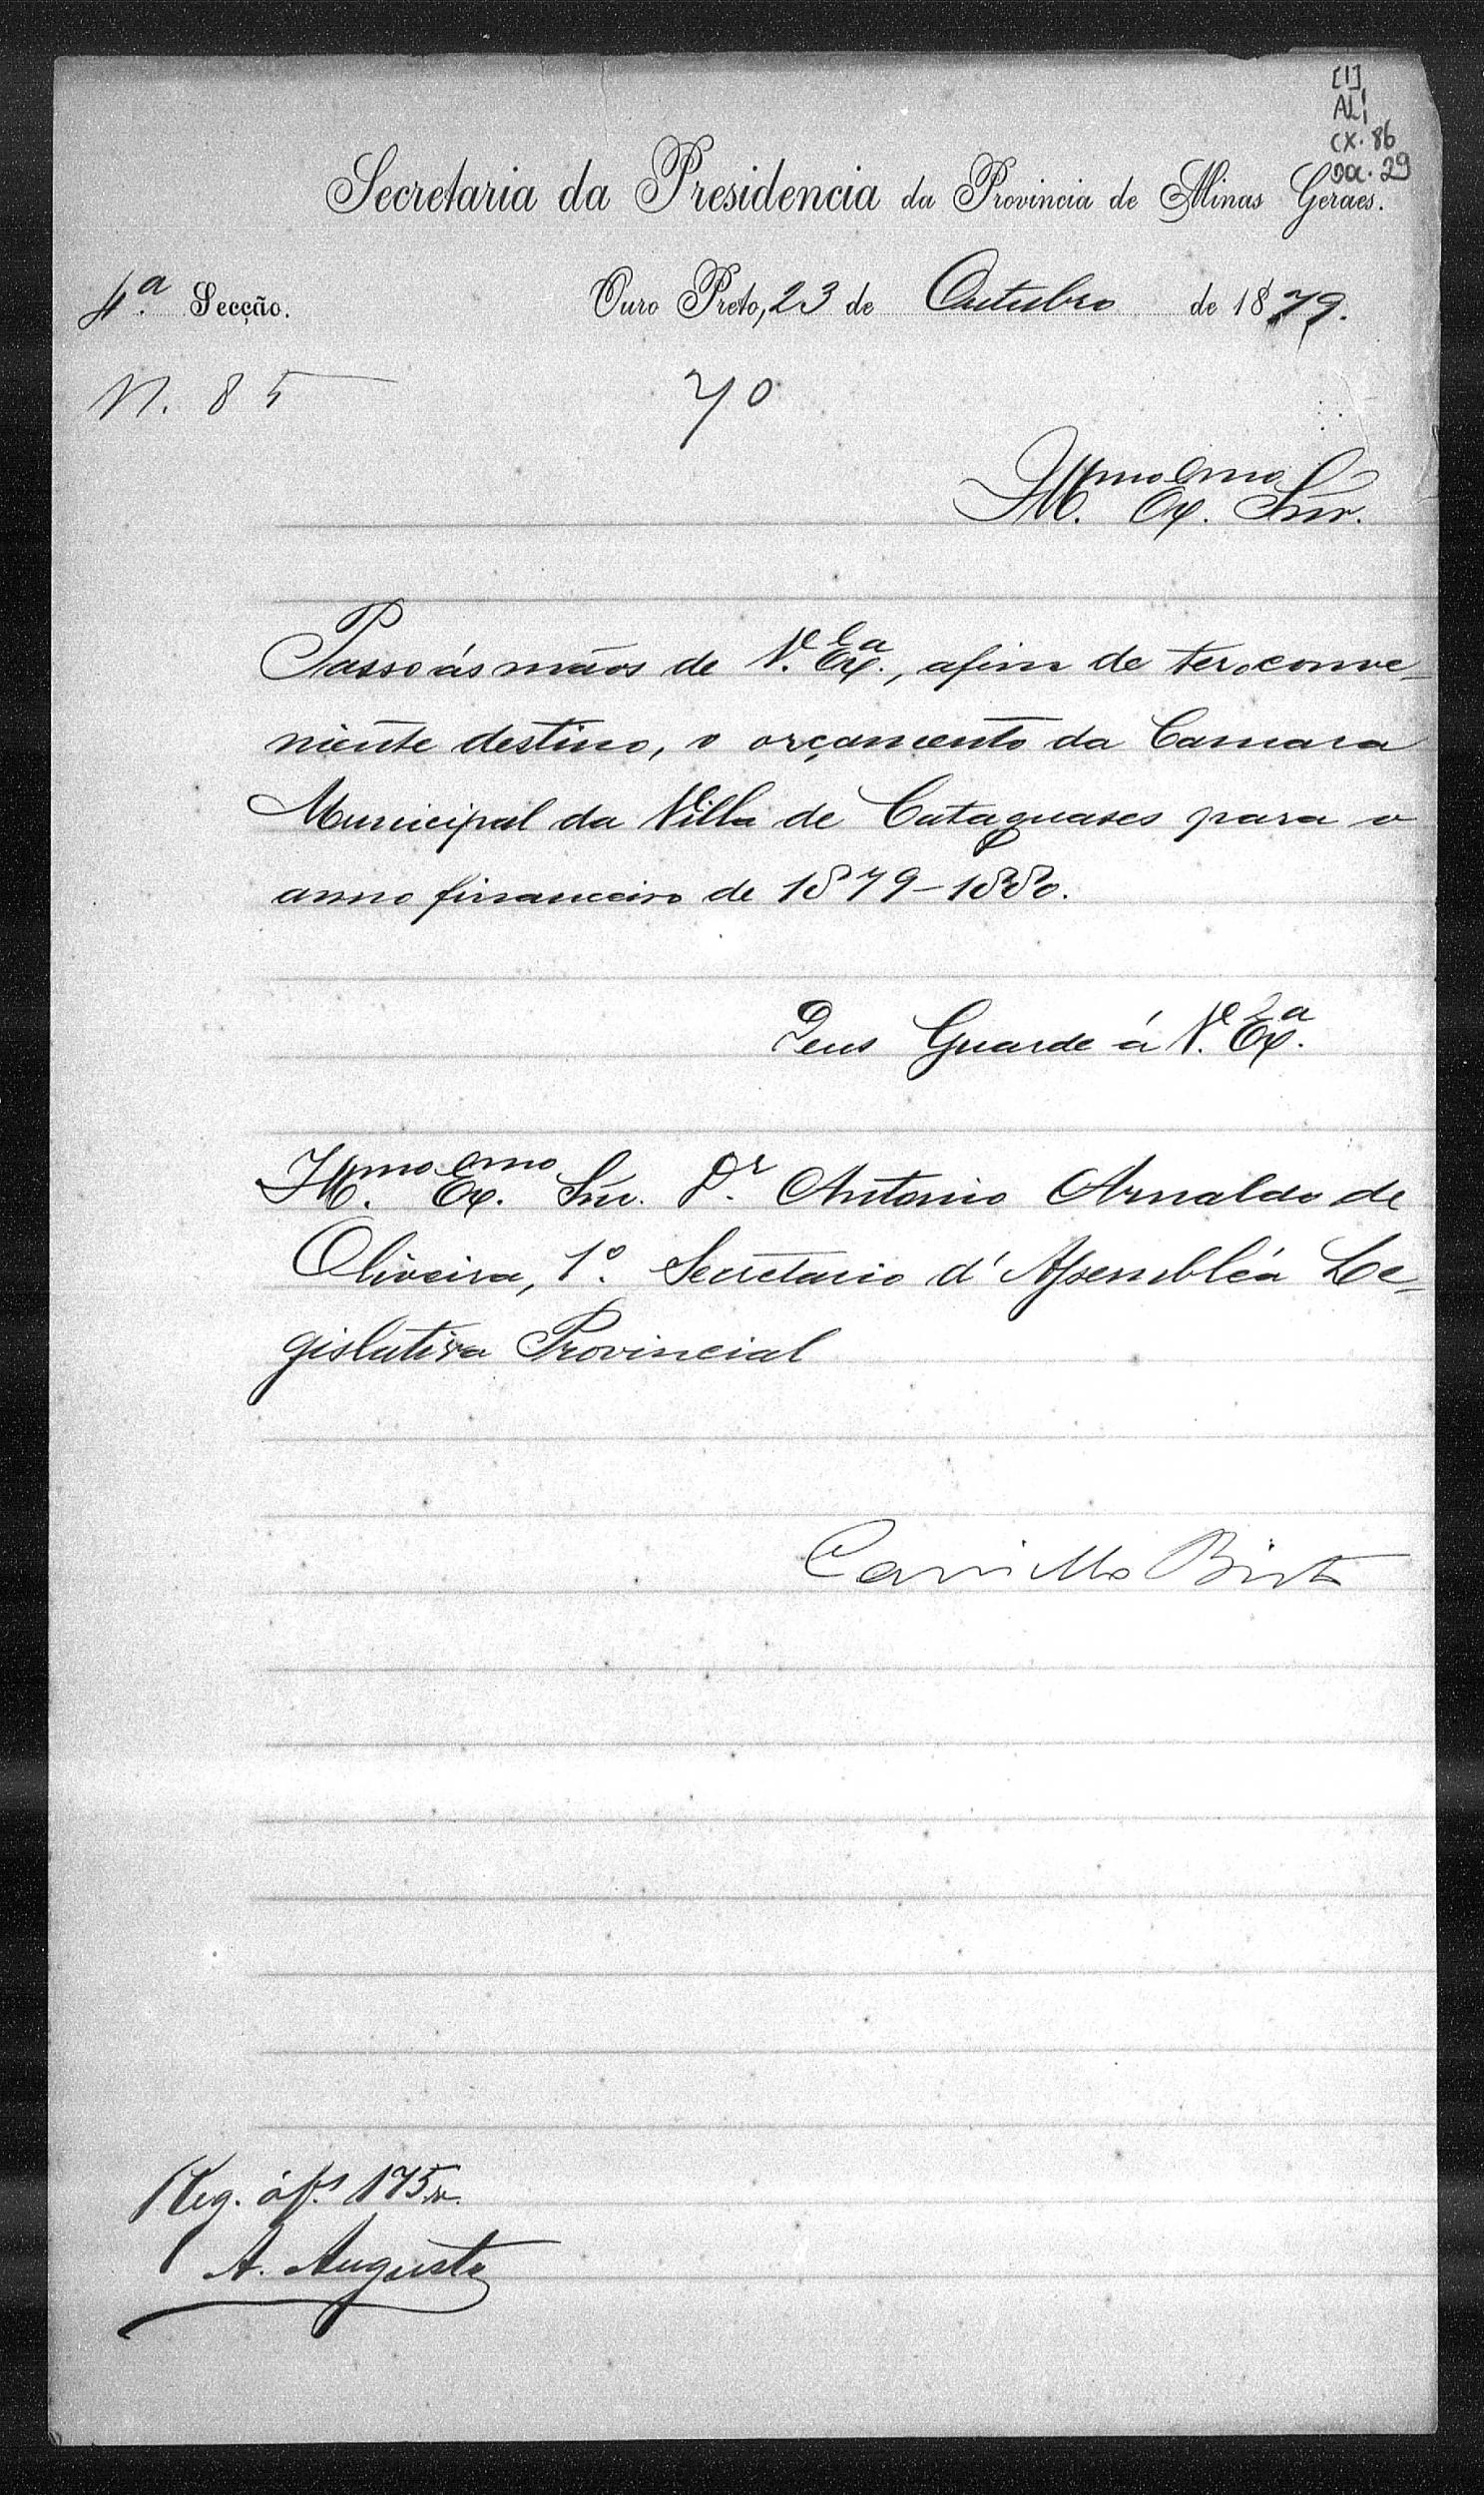 [1]
AL1
cx. 86
Dc. 29
Secretaria da Presidencia da Provincia de Minas Geraes.
4.ª Secção. Ouro Preto, 23 de Outubro de 1879.
N. 85 70
Ill.mo Ex.mo Snr.
Passo ás mãos de V. Ex.cia, afim de ter o conve-
niente destino, o orçamento da Camara
Municipal da Villa de Cataguases para o
anno financeiro de 1879-1880.
Deus Guarde á V. Ex.cia
Ill.mo Ex.mo Snr. Dr. Antonio Arnaldo de
Oliveira, 1º. Secretario d'Assembléa Le-
gislativa Provincial
Camillo Brito
Reg. á fs. 175
A. Augusto